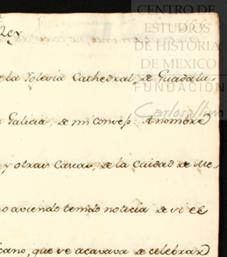 Rey
CENTRO DE
ESTUDIOS
DE HISTORIA
DE MEXICO
de la Iglesia Cathedral de Guadala-
FUNDACIÓN
Carlos Slim
Galicia de mi conses. A nombre
y otras Causas, de la Ciudad de Me-
aviendo tenido noticia de vi el
cano, que se acavava de celebrar